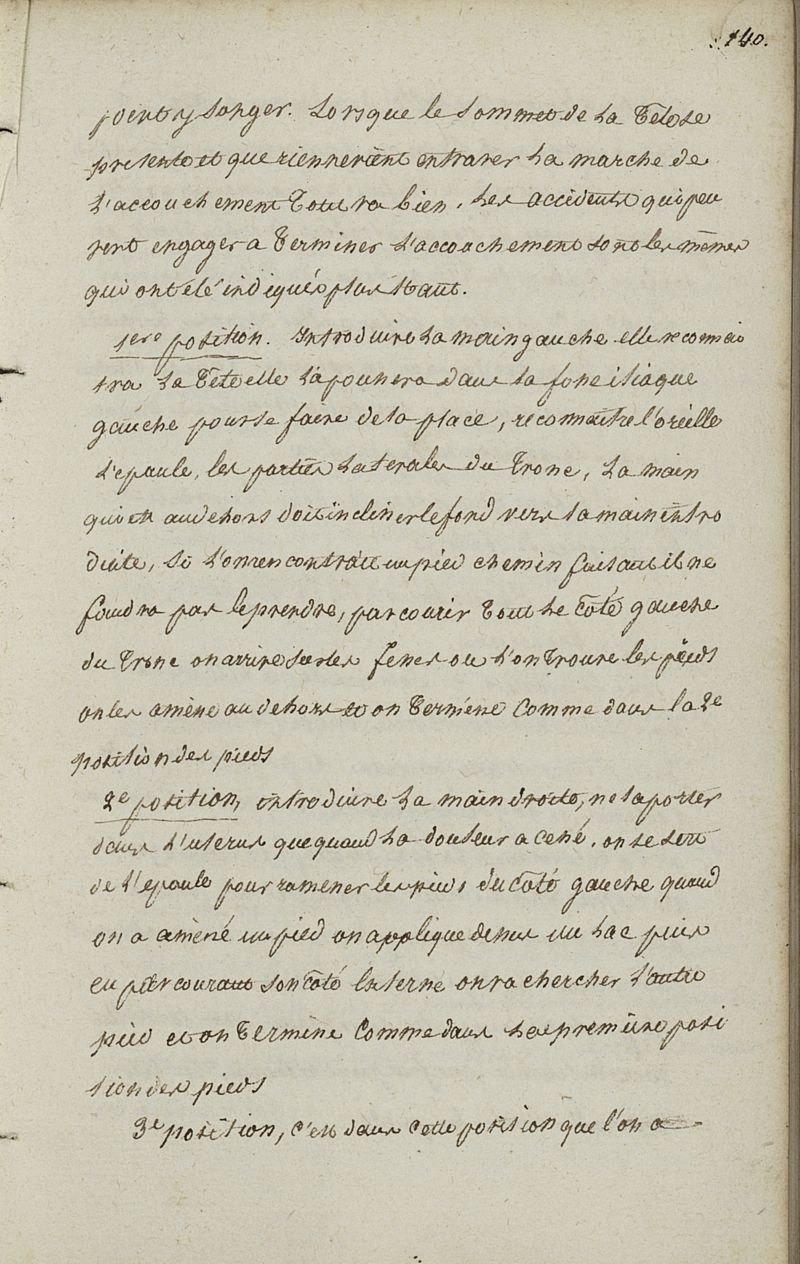 140.
point y songer. Lorsque le sommet de la Tete se
presente et que rien ne vient entraver la marche de
l'accouchement Tout va bien. Les accidents qui peu
vent engager a Terminer l'accouchement sont les mêmes
qui ont été indiqués plus haut.
1ere position. Introduire la main gauche elle reconnai
tra la Tete elle la poussera dans la fosse iliaque
gauche pour se faire de la place, reconnaitre l'oreille
l'epaule, les parties laterales du Tronc, la main
qui est au dehors doit incliner le fond vers la main intro
duite, Si l'on rencontrait un pied chemin faisant il ne
faudra pas le prendre, parcourir Tout le coté gauche
du Tronc on arrive sur les fesses ou l'on Trouve les pieds
on les amène au dehors et on Termine Comme dans la 2e
position des pieds
2e position, introduire la main droite, ne la porter
dans l'uterus que quand la douleur a cessé, on se sert
de l'epaule pour ramener les pieds du coté gauche quand
on a amené un pied on applique dessus un lac puis
en parcourant son coté Interne on va chercher l'autre
pied et on Termine Comme dans la premiere posi
tion des pieds
3e position, c'est dans cette position que l'on a